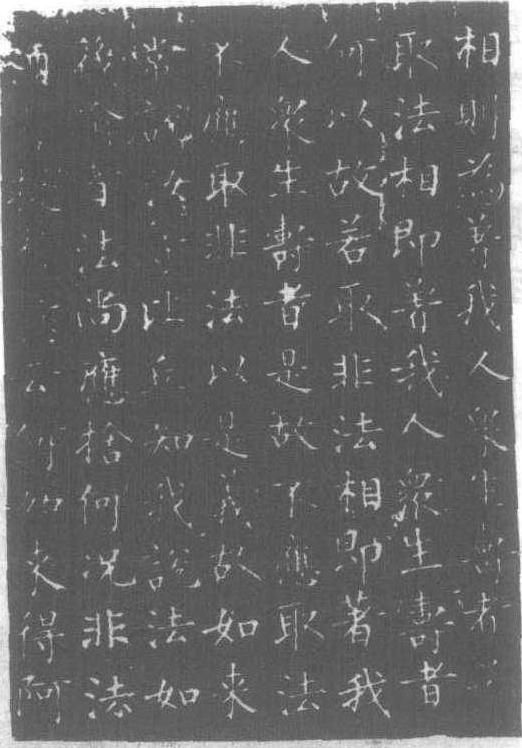 相則為著我人眾生壽者
取法相即著我人眾生壽者
何以故若取非法相即著我
人眾生壽者是故不應取法
不應取非法以是義故如來
常說汝等比丘知我說法如
筏喻者法尚應捨何況非法
提云何如來得阿